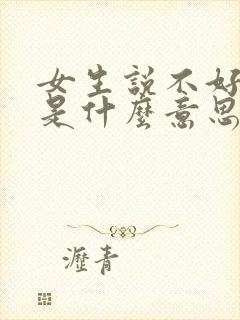 女生說不好
是什麼意思
瀝青